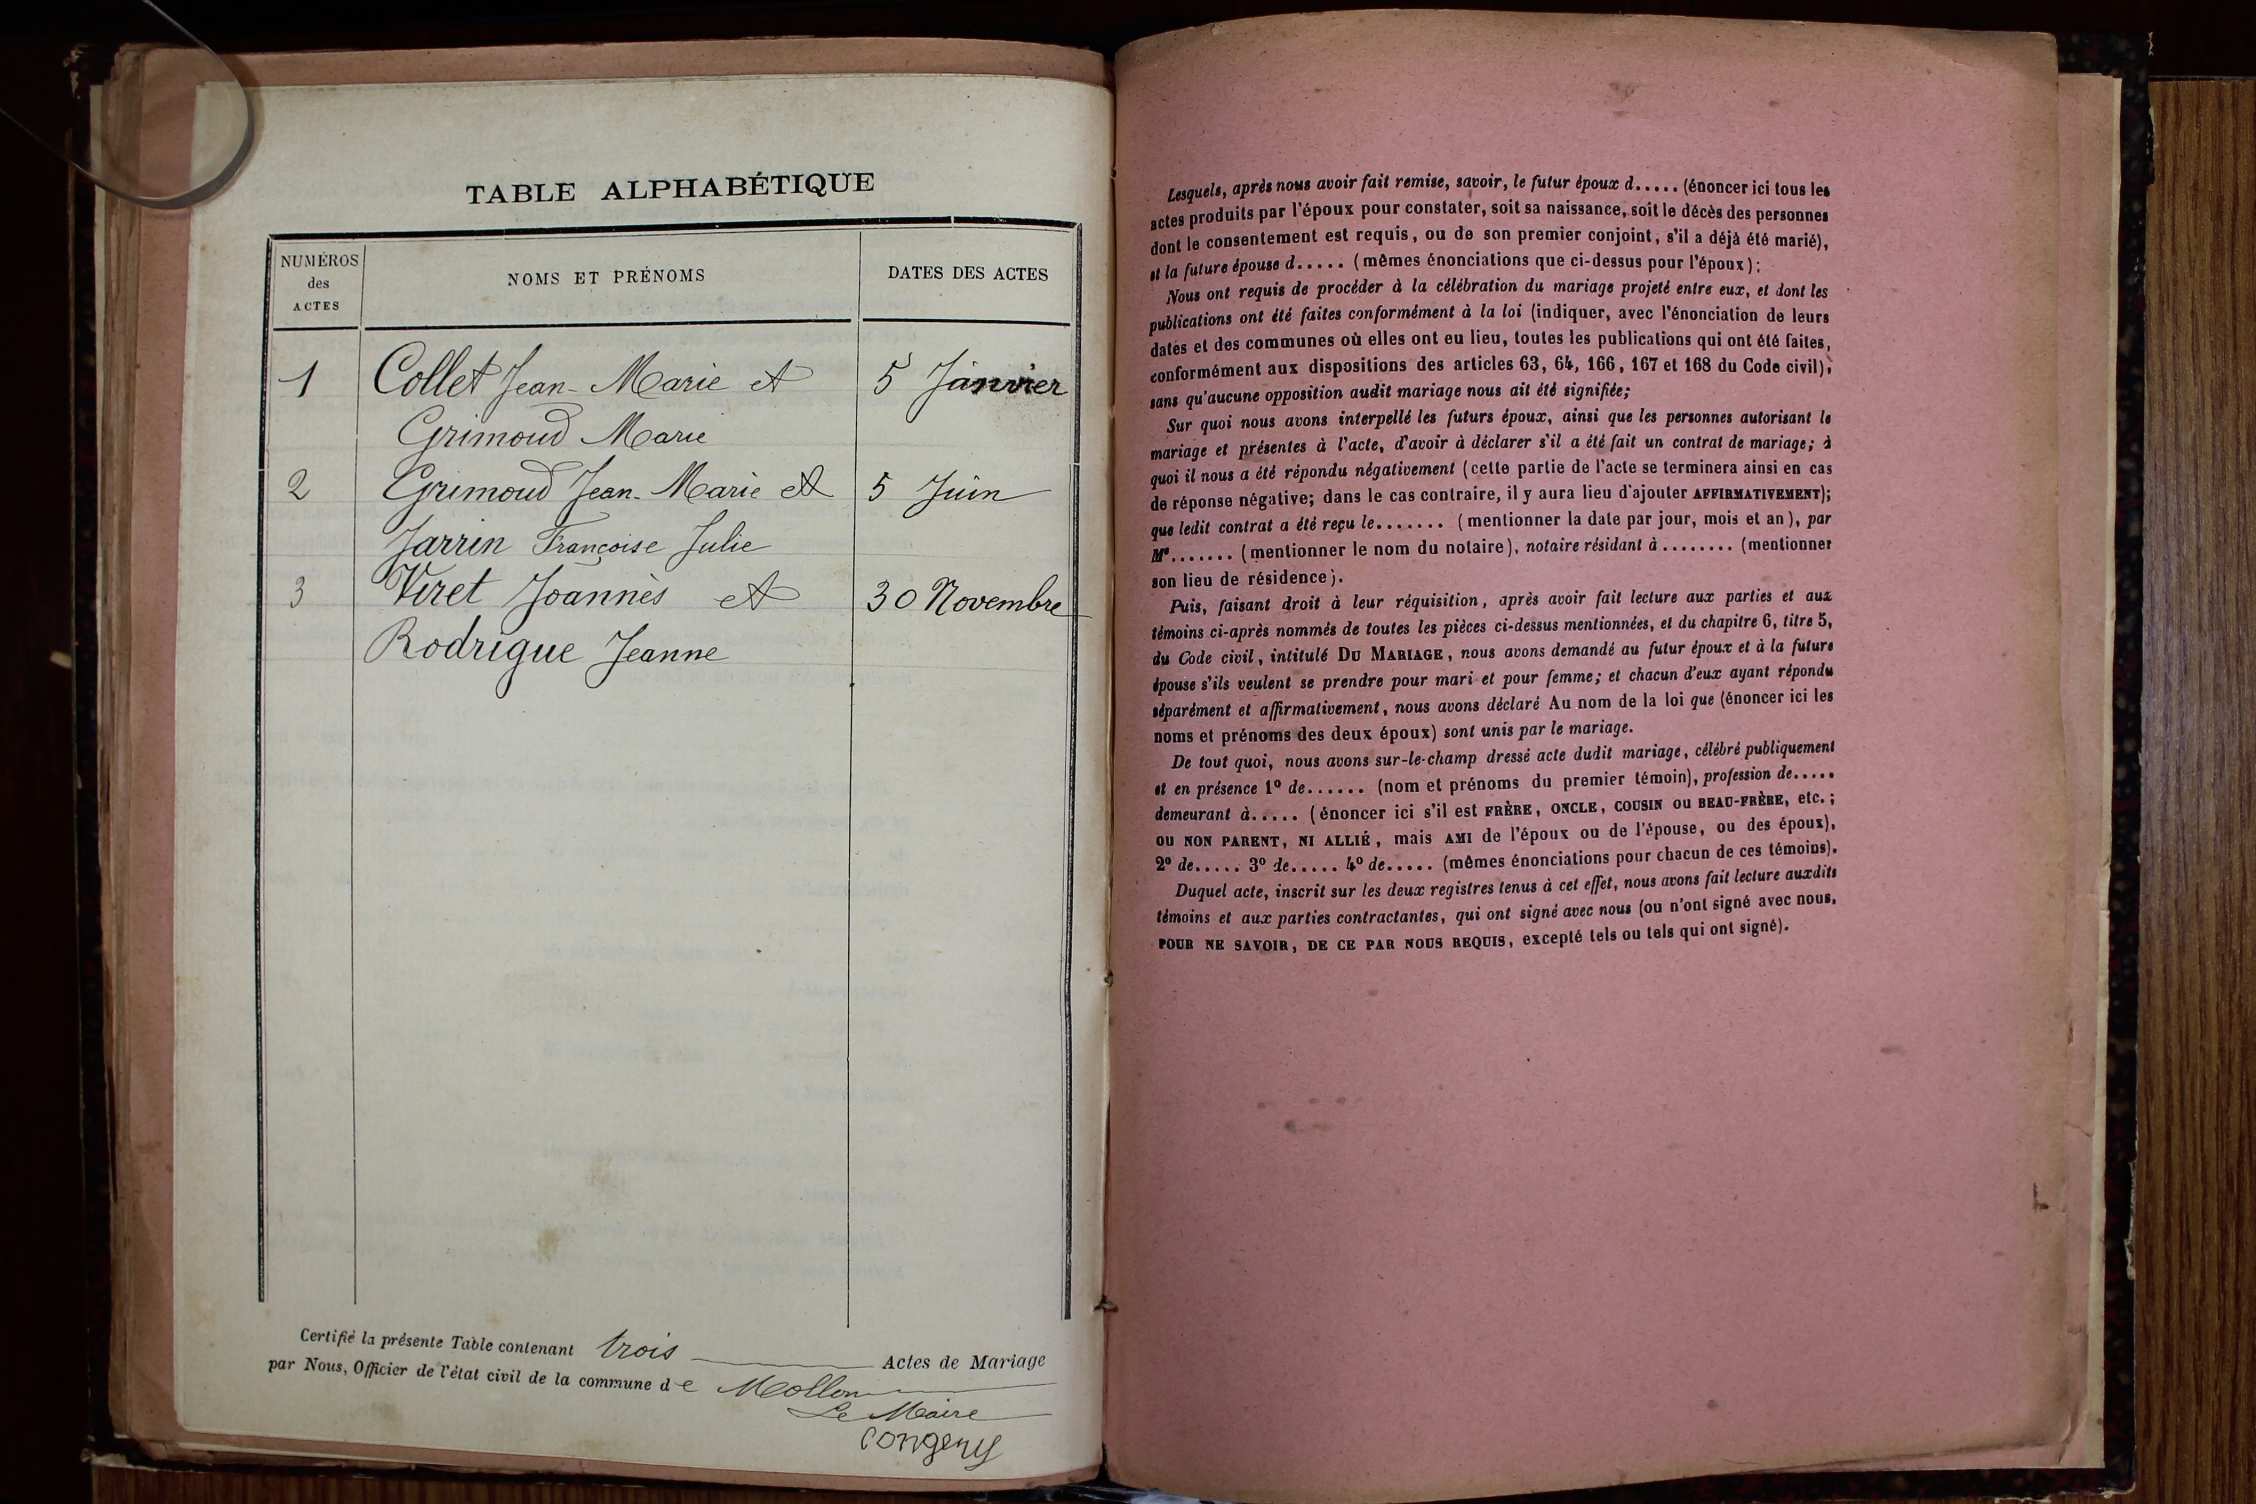 TABLE ALPHABÉTIQUE
NUMÉROS
des
ACTES
NOMS ET PRÉNOMS
DATES DES ACTES
1 Collet Jean-Marie et 5 Janvier
Grimoud Marie
2 Grimoud Jean-Marie et 5 Juin
Jarrin Françoise Julie
3 Viret Joannès et 30 Novembre
Rodrigue Jeanne
Certifié la présente Table contenant trois Actes de Mariage
par Nous, Officier de l'état civil de la commune de Mollon
Le Maire
Congery
Lesquels, après nous avoir fait remise, savoir, le futur époux d..... (énoncer ici tous les
actes produits par l'époux pour constater, soit sa naissance, soit le décès des personnes
dont le consentement est requis, ou de son premier conjoint, s'il a déjà été marié),
et la future épouse d..... (mêmes énonciations que ci-dessus pour l'époux);
Nous ont requis de procéder à la célébration du mariage projeté entre eux, et dont les
publications ont été faites conformément à la loi (indiquer, avec l'énonciation de leurs
dates et des communes où elles ont eu lieu, toutes les publications qui ont été faites,
conformément aux dispositions des articles 63, 64, 166, 167 et 168 du Code civil);
sans qu'aucune opposition audit mariage nous ait été signifiée;
Sur quoi nous avons interpellé les futurs époux, ainsi que les personnes autorisant le
mariage et présentes à l'acte, d'avoir à déclarer s'il a été fait un contrat de mariage; à
quoi il nous a été répondu négativement (cette partie de l'acte se terminera ainsi en cas
de réponse négative; dans le cas contraire, il y aura lieu d'ajouter AFFIRMATIVEMENT);
que ledit contrat a été reçu le....... (mentionner la date par jour, mois et an), par
Me....... (mentionner le nom du notaire), notaire résidant à ........ (mentionner
son lieu de résidence).
Puis, faisant droit à leur réquisition, après avoir fait lecture aux parties et aux
témoins ci-après nommés de toutes les pièces ci-dessus mentionnées, et du chapitre 6, titre 5,
du Code civil, intitulé DU MARIAGE, nous avons demandé au futur époux et à la future
épouse s'ils veulent se prendre pour mari et pour femme; et chacun d'eux ayant répondu
séparément et affirmativement, nous avons déclaré Au nom de la loi que (énoncer ici les
noms et prénoms des deux époux) sont unis par le mariage.
De tout quoi, nous avons sur-le-champ dressé acte dudit mariage, célébré publiquement
et en présence 1º de...... (nom et prénoms du premier témoin), profession de.....
demeurant à..... (énoncer ici s'il est FRÈRE, ONCLE, COUSIN OU BEAU-FRÈRE, etc.;
OU NON PARENT, NI ALLIÉ, mais AMI de l'époux ou de l'épouse, ou des époux),
2º de..... 3º de..... 4º de..... (mêmes énonciations pour chacun de ces témoins).
Duquel acte, inscrit sur les deux registres tenus à cet effet, nous avons fait lecture auxdits
témoins et aux parties contractantes, qui ont signé avec nous (ou n'ont signé avec nous,
POUR NE SAVOIR, DE CE PAR NOUS REQUIS, excepté tels ou tels qui ont signé).